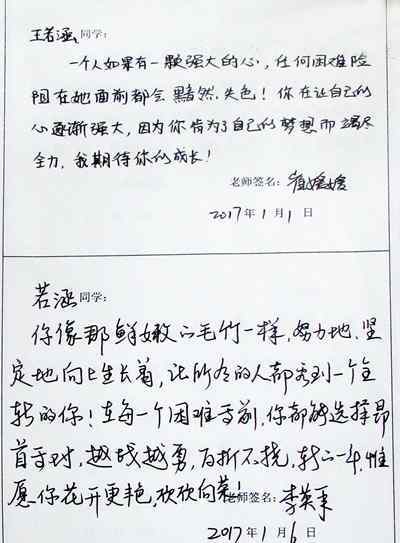 王若涵同学:
一个人如果有一颗强大的心,任何困难险
阻在她面前都会黯然失色!你在让自己的
心逐渐强大,因为你肯为了自己的梦想而竭尽
全力,我期待你的成长!
老师签名:崔嫒嫒
2017年1月1日
若涵同学:
你像那鲜嫩的毛竹一样,努力地、坚
定地向上生长着,让所有的人都看到一个全
新的你!在每一个困难面前,你都能选择昂
首面对,越战越勇,百折不挠,新的一年,惟
愿你花开更艳,欣欣向荣!
老师签名:李英
2017年1月6日